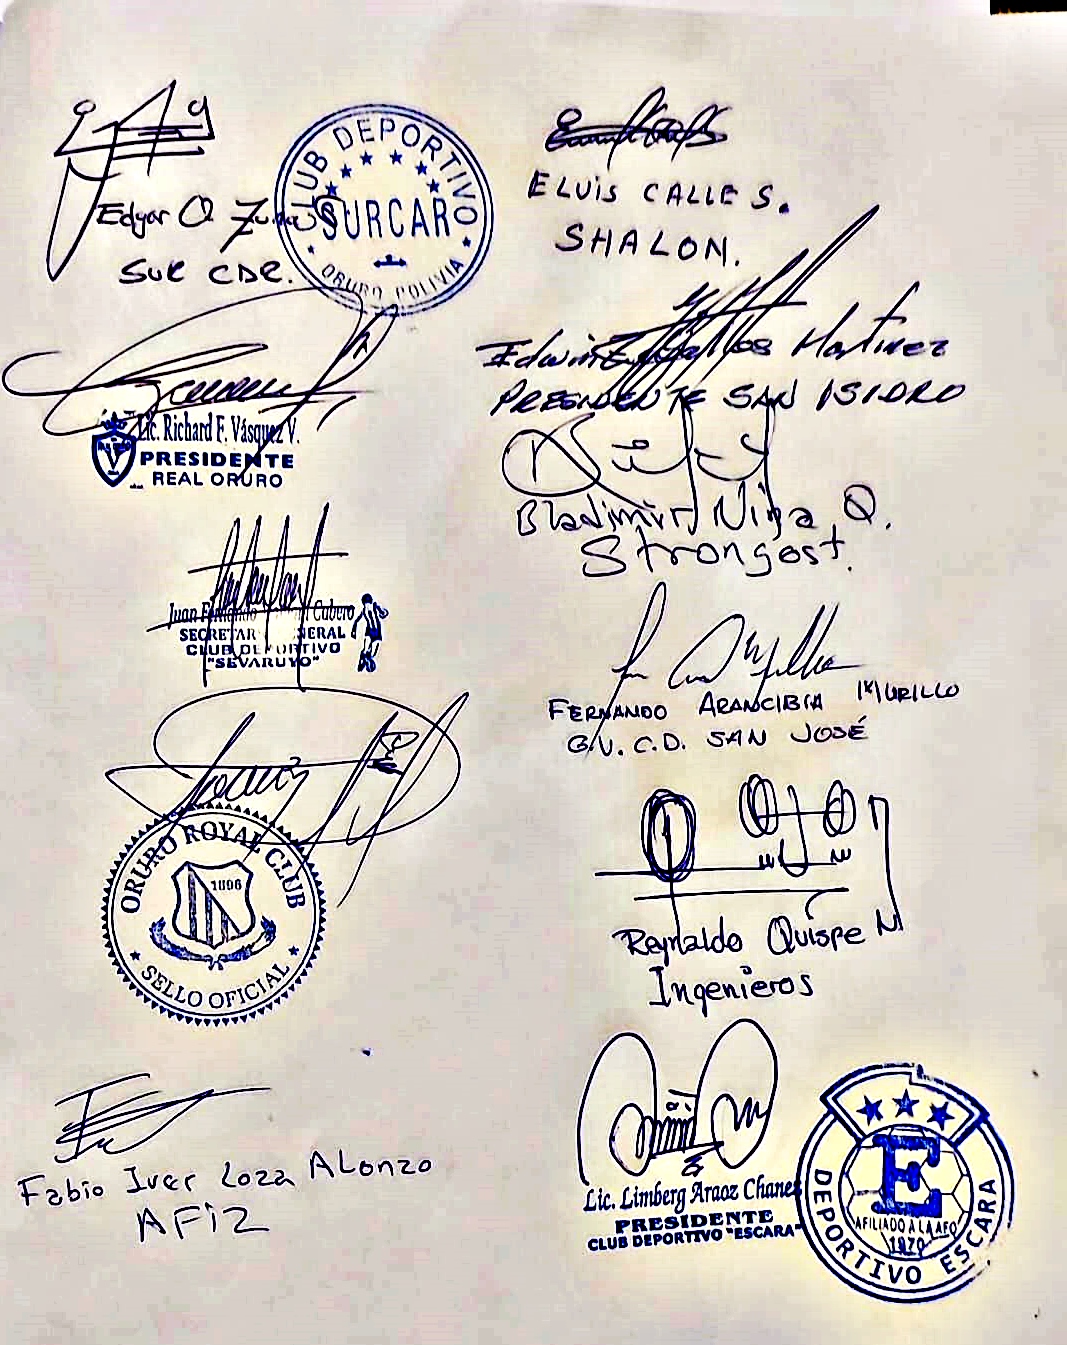 Edgar O.
SUR CAR.
CLUB DEPORTIVO
SURCARO
ORURO BOLIVIA
Lic. Richard F. Vásquez V.
PRESIDENTE
REAL ORURO
Juan Cubero
CLUB DEPORTIVO
"SEVARUYO"
ORURO ROYAL CLUB
1896
SELLO OFICIAL
Fabio Iver Loza ALonzo
AFIZ
ELVIS CALLE S.
SHALON.
Edwin Martinez
PRESIDENTE SAN ISIDRO
Bladimir Nina Q.
Strongest.
FERNANDO ARANCIBIA MURILLO
G.V. C.D. SAN JOSÉ
Reynaldo Quispe N
Ingenieros
Lic. Limberg Araoz Chanes
PRESIDENTE
CLUB DEPORTIVO "ESCARA"
E
AFILIADO A LA AFO
1979
DEPORTIVO ESCARA